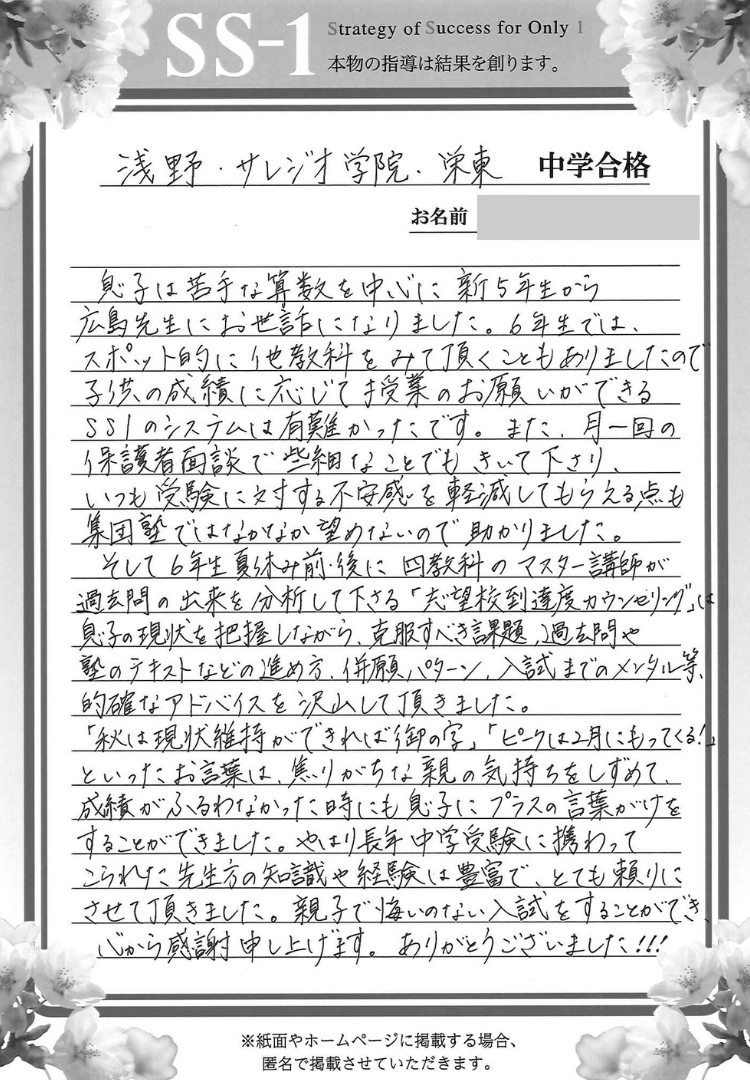 SS-1
Strategy of Success for Only 1
本物の指導は結果を創ります。
浅野・サレジオ学院・栄東 中学合格
お名前
息子は苦手な算数を中心に新5年生から
広島先生にお世話になりました。6年生では、
スポット的に他教科をみて頂くこともありましたので
子供の成績に応じて授業のお願いができる
SS1のシステムは有難かったです。また、月一回の
保護者面談で些細なことでもきいて下さり、
いつも受験に対する不安感を軽減してもらえる点も
集団塾ではなかなか望めないので助かりました。
そして6年生夏休み前・後に四教科のマスター講師が
過去問の出来を分析して下さる「志望校到達度カウンセリング」は
息子の現状を把握しながら、克服すべき課題、過去問や
塾のテキストなどの進め方、併願パターン、入試までのメンタル等、
的確なアドバイスを沢山して頂きました。
「秋は現状維持ができれば御の字」「ピークは2月にもってくる!」
といったお言葉は、焦りがちな親の気持ちをしずめて、
成績がふるわなかった時にも息子にプラスの言葉がけを
することができました。やはり長年中学受験に携わって
こられた先生方の知識や経験は豊富で、とても頼りに
させて頂きました。親子で悔いのない入試をすることができ、
心から感謝申し上げます。ありがとうございました!!!
※紙面やホームページに掲載する場合、
匿名で掲載させていただきます。